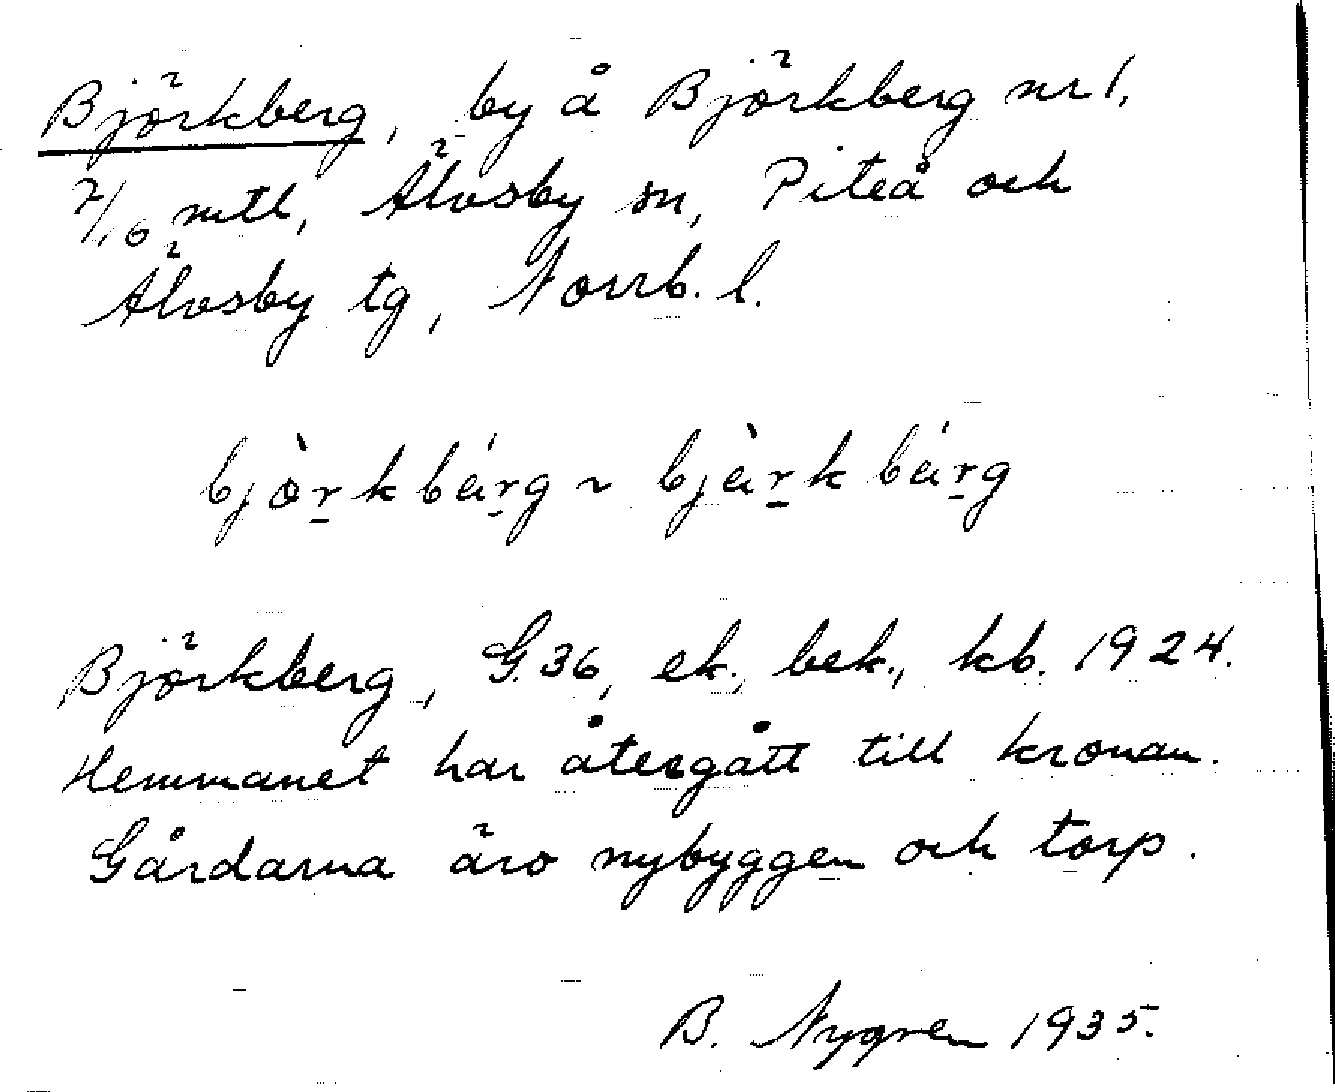 Björkberg, by å Björkberg nr 1,
7/16 mtl, Älvsby sn, Piteå och
Älvsby tg, Norrb. l.
bjòrkbárg ~ bjàrkbárg
Björkberg, G. 36, ek., bek., kb. 1924.
Hemmanet har återgått till kronan.
Gårdarna äro nybyggen och torp.
B. Nygren 1935.